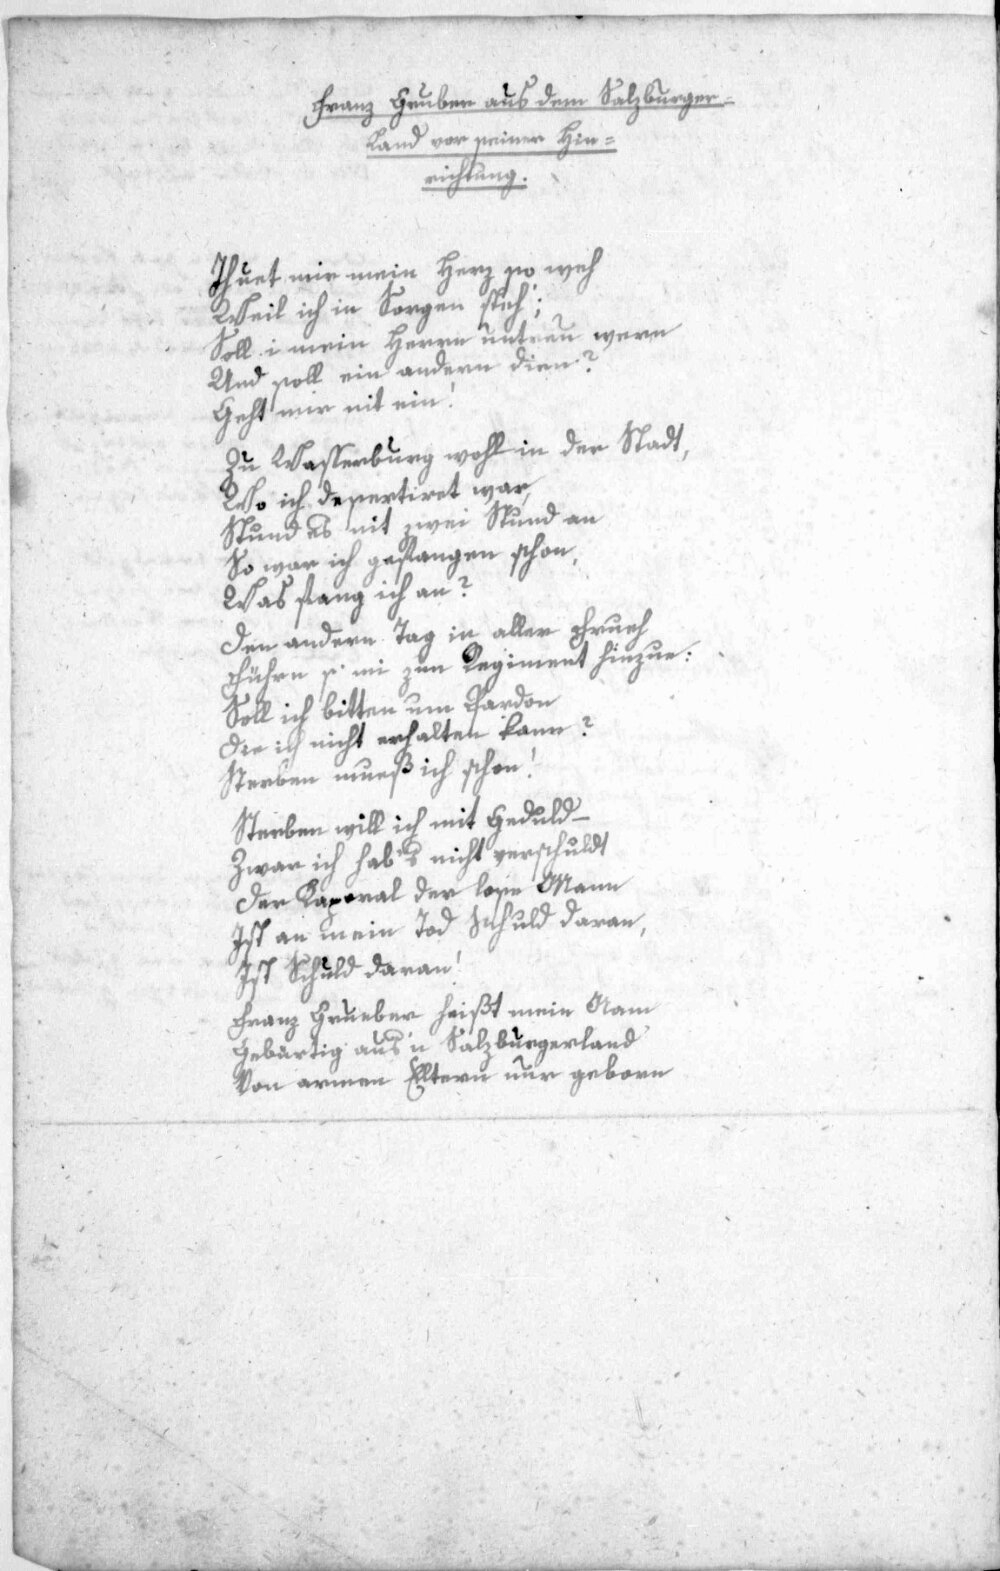 Franz Gruber aus dem Salzburger=
Land vor seiner Hin=
richtung.
Thuet mir mein Herz so weh
Weil ich in Sorgen steh';
Soll i mein Herrn untreu wern
Und soll ein andern dien?
Geht mir nit ein!
Zu Wasserburg wohl in der Stadt,
Wo ich desertiret war,
Stund es nit zwei Stund an
So war ich gefangen schon,
Was fang ich an?
Den andern Tag in aller Frueh
Führn s' mi zum Regiment hinzue:
Soll ich bitten um Pardon
Die ich nicht erhalten kann?
Sterben mueß ich schon!
Sterben will ich mit Geduld –
Zwar ich hab's nicht verschuldt
Der Kaporal der lose Mann
Ist an mein Tod Schuld daran,
Ist Schuld daran!
Franz Grueber heißt mein Nam
Gebürtig aus'n Salzburgerland
Von armen Elltern nur geborn